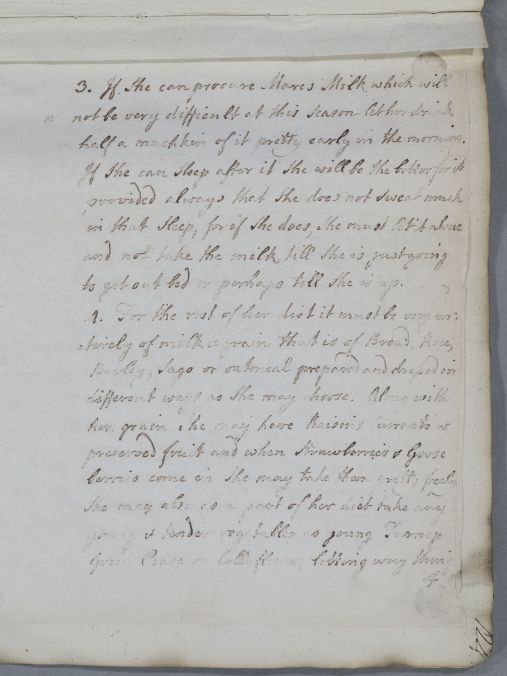 3. If She can procure Mares Milk which will
not be very difficult at this season let her drink
half a mutchkin of it pretty early in the morning.
If She can Sleep after it She will be the better for it
provided always that She does not sweat much
in that Sleep, for if She does, she must let it alone
and not take the milk till She is just going
to get out bed or perhaps till She is up.
4. For the rest of her diet it must be very en-
=tirely of milk & grain that is of Bread, Rice,
Barley, Sago or oatmeal prepared and dressed in
different ways as She may choose. Along with
her grain She may have Raisins Currants &
preserved fruit and when Strawberries & Goose
berries come in She may take them pretty freely
She may also as a part of her diet take any
young & tender vegetables as young Turnip
Green Pease or Colliflower, letting every thing
of